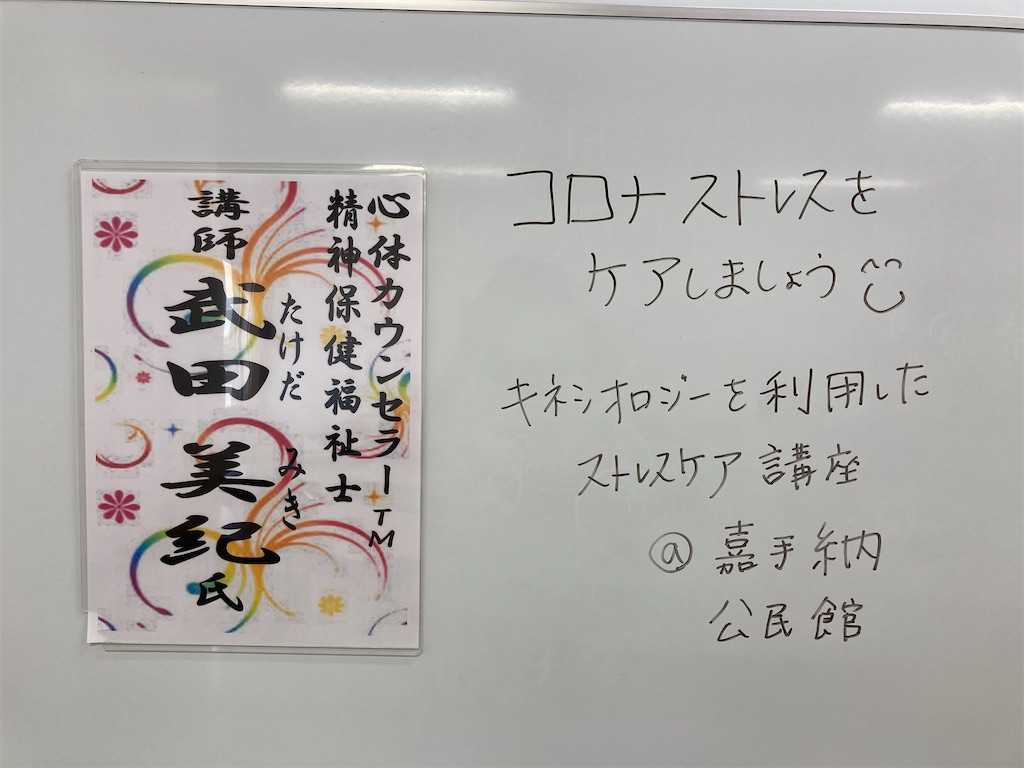 心体カウンセラーTM
精神保健福祉士
たけだ みき
講師 武田 美紀 氏
コロナストレスを
ケアしましょう
キネシオロジーを利用した
ストレスケア講座
@嘉手納
公民館